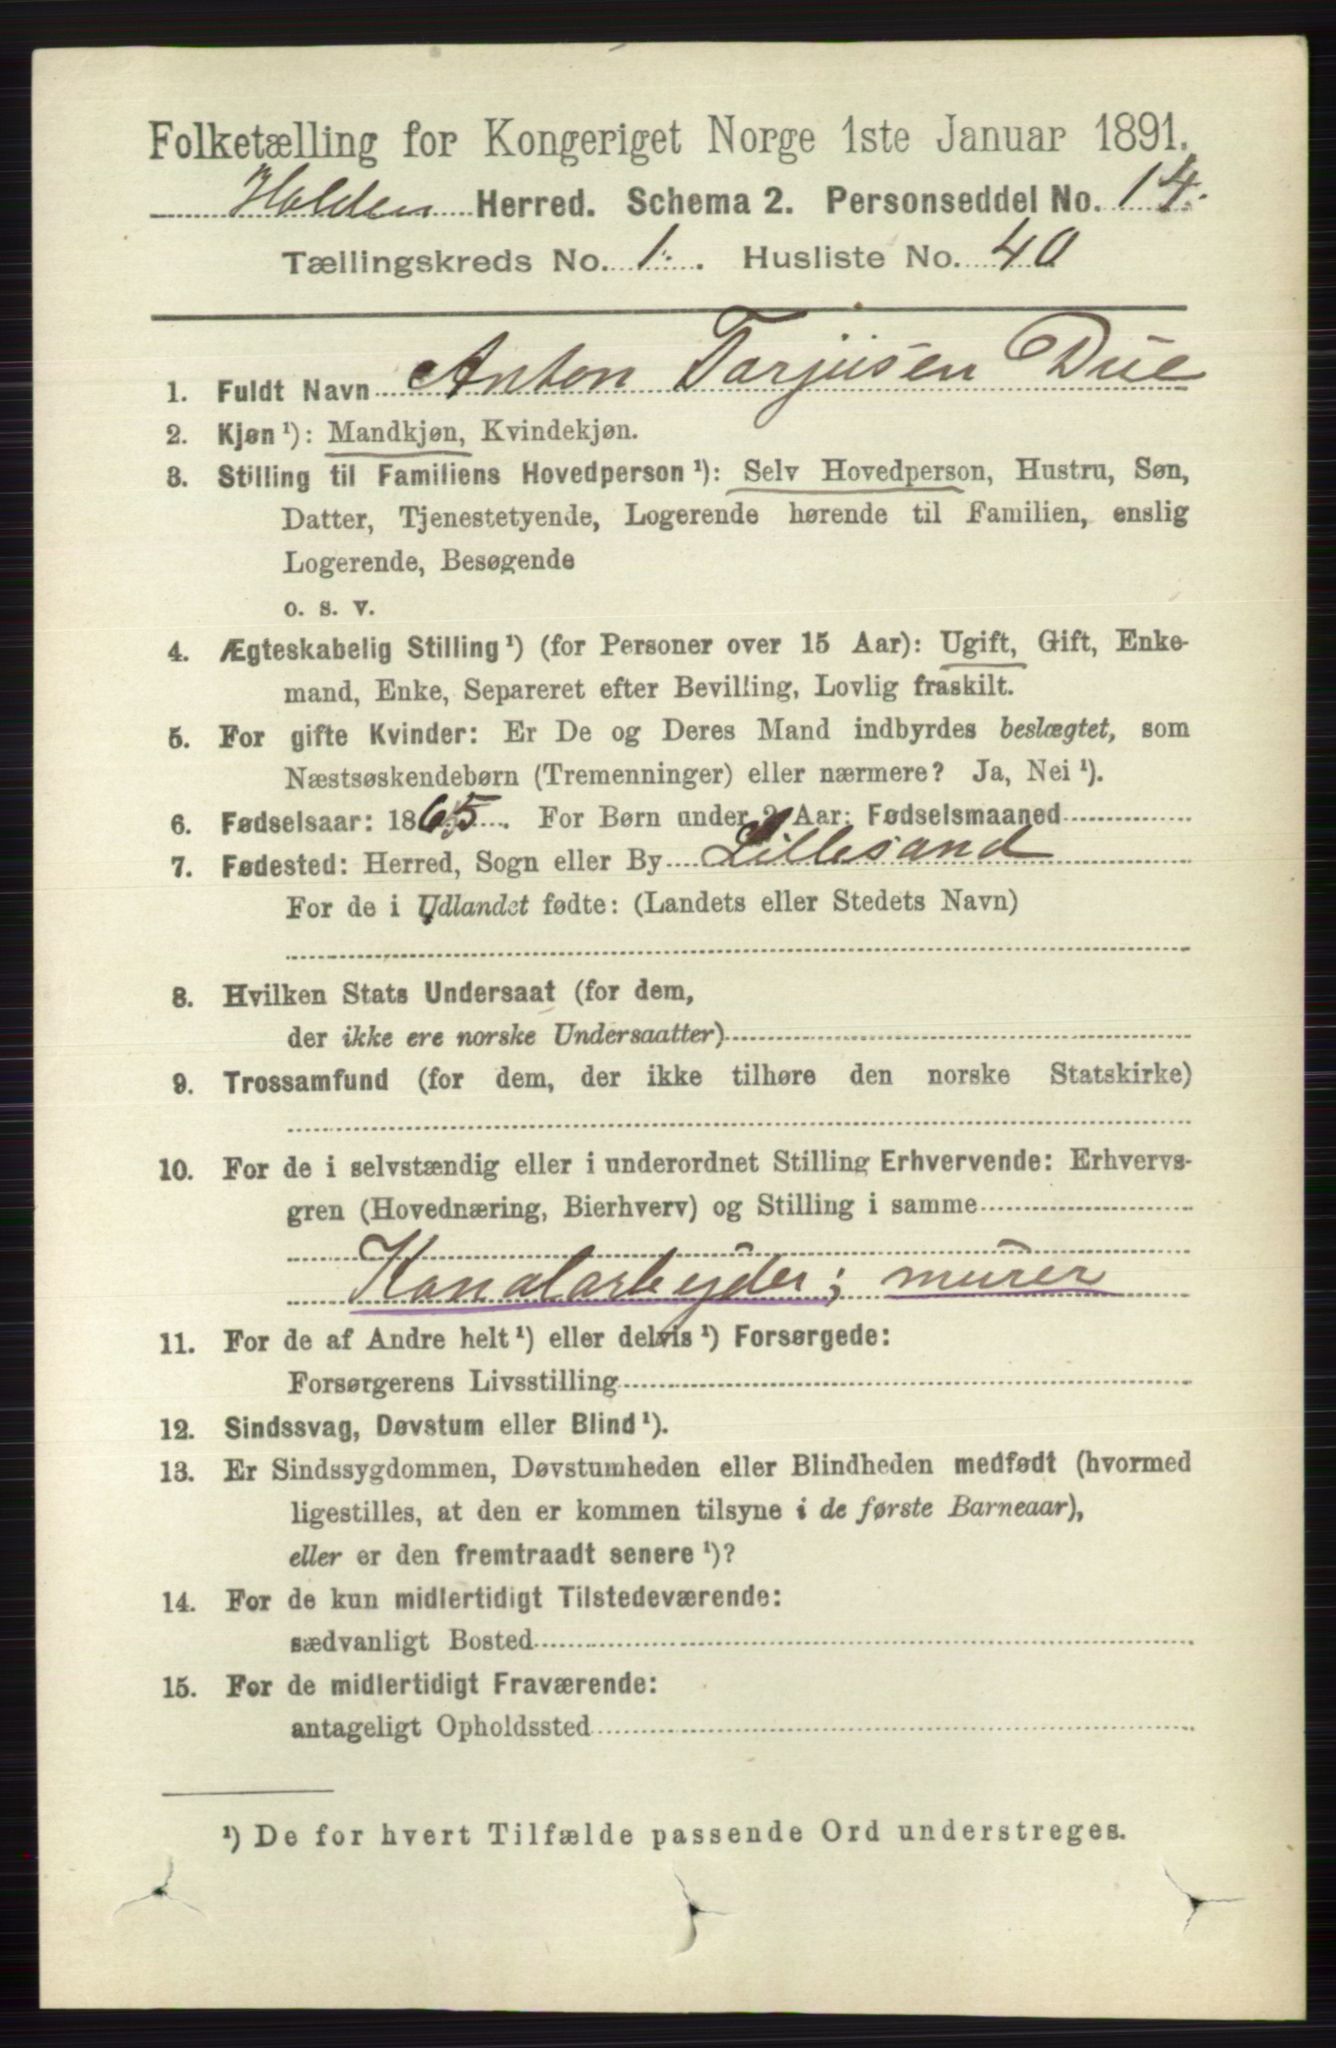 Folketælling for Kongeriget Norge 1ste Januar 1891.
Holden Herred. Schema 2. Personseddel No. 14.
Tællingskreds No. 1. Husliste No. 40
1. Fuldt Navn Anton Tarjusen Due
2. Kjøn¹): Mandkjøn, Kvindekjøn.
3. Stilling til Familiens Hovedperson¹): Selv Hovedperson, Hustru, Søn,
Datter, Tjenestetyende, Logerende hørende til Familien, enslig
Logerende, Besøgende
o. s. v.
4. Ægteskabelig Stilling¹) (for Personer over 15 Aar): Ugift, Gift, Enke-
mand, Enke, Separeret efter Bevilling, Lovlig fraskilt.
5. For gifte Kvinder: Er De og Deres Mand indbyrdes beslægtet, som
Næstsøskendebørn (Tremenninger) eller nærmere? Ja, Nei¹).
6. Fødselsaar: 1865. For Børn under 2 Aar: Fødselsmaaned
7. Fødested: Herred, Sogn eller By Lillesand
For de i Udlandet fødte: (Landets eller Stedets Navn)
8. Hvilken Stats Undersaat (for dem,
der ikke ere norske Undersaatter)
9. Trossamfund (for dem, der ikke tilhøre den norske Statskirke)
10. For de i selvstændig eller i underordnet Stilling Erhvervende: Erhvervs-
gren (Hovednæring, Bierhverv) og Stilling i samme
Kanalarbeyder; murer
11. For de af Andre helt¹) eller delvis¹) Forsørgede:
Forsørgerens Livsstilling
12. Sindssvag, Døvstum eller Blind¹).
13. Er Sindssygdommen, Døvstumheden eller Blindheden medfødt (hvormed
ligestilles, at den er kommen tilsyne i de første Barneaar),
eller er den fremtraadt senere¹)?
14. For de kun midlertidigt Tilstedeværende:
sædvanligt Bosted
15. For de midlertidigt Fraværende:
antageligt Opholdssted
¹) De for hvert Tilfælde passende Ord understreges.